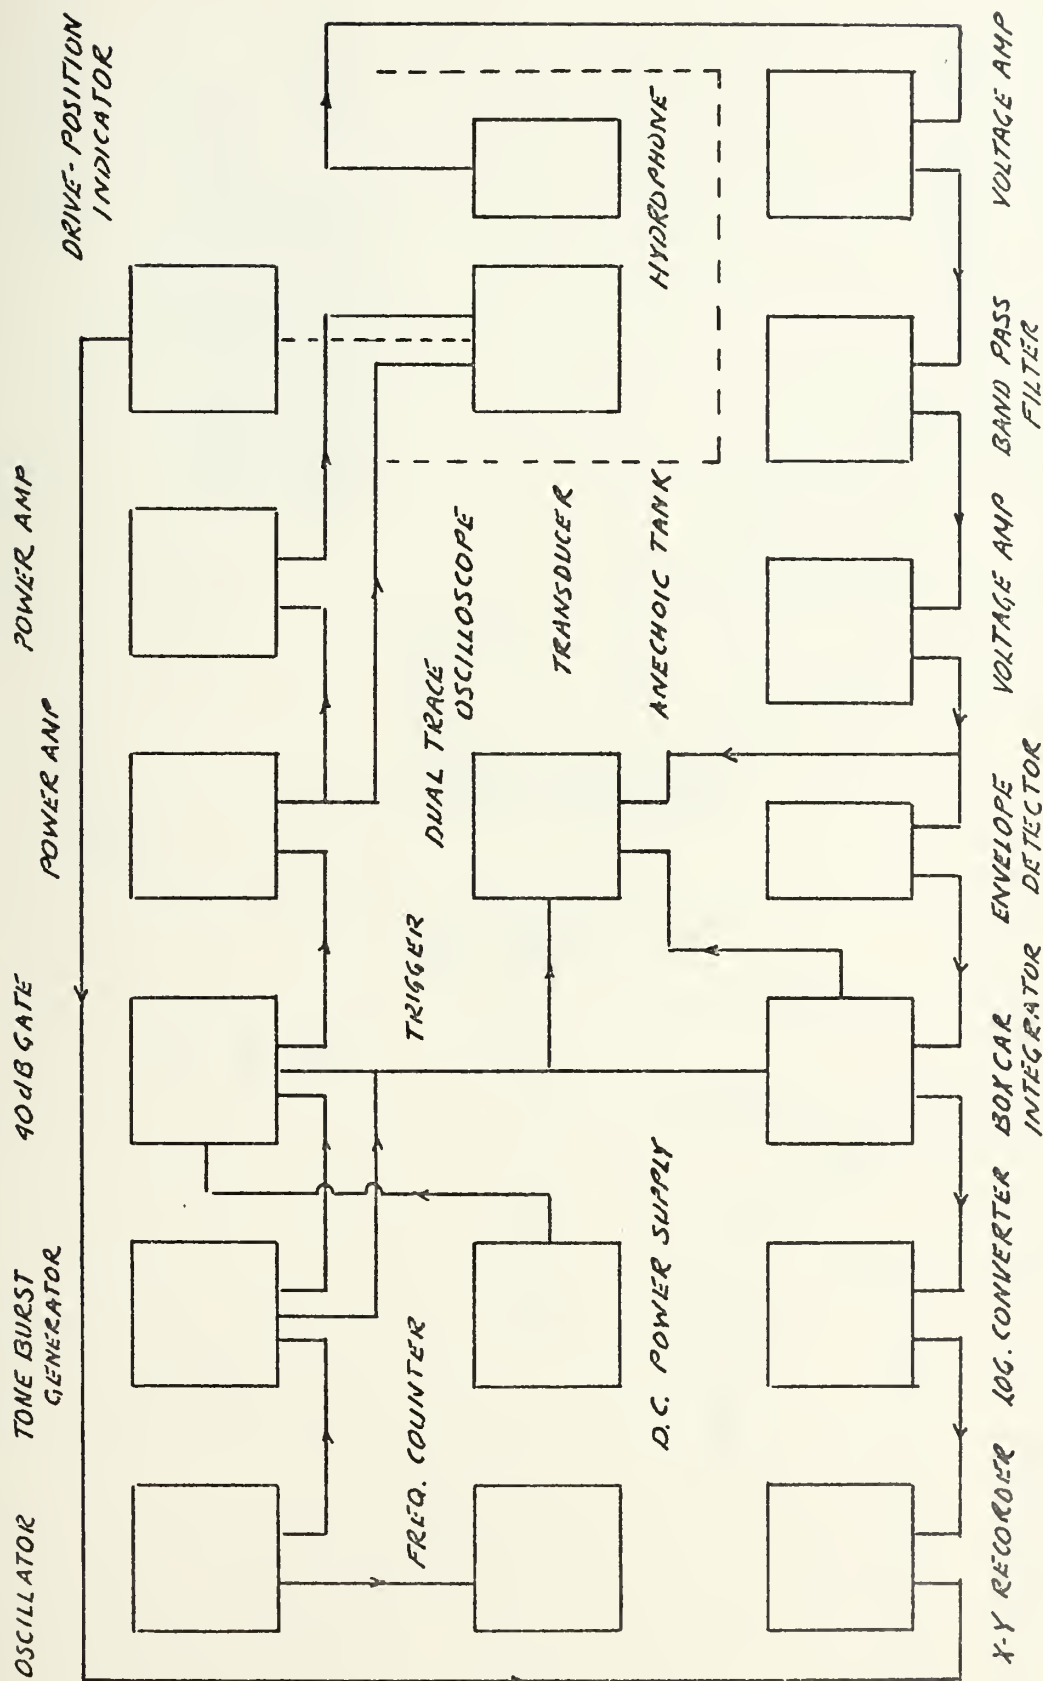 OSCILLATOR
TONE BURST
GENERATOR
40 dB GATE
POWER ANP
POWER AMP
DRIVE-POSITION
INDICATOR
FREQ. COUNTER
TRIGGER
DUAL TRACE
OSCILLOSCOPE
TRANSDUCER
HYDROPHONE
D.C. POWER SUPPLY
ANECHOIC TANK
X-Y RECORDER
LOG. CONVERTER
BOXCAR
INTEGRATOR
ENVELOPE
DETECTOR
VOLTAGE AMP
BAND PASS
FILTER
VOLTAGE AMP